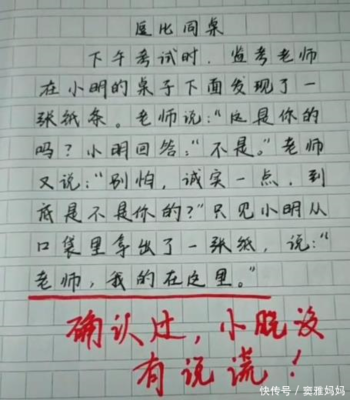 逗比同桌
下午考试时，监考老师
在小明的桌子下面发现了一
张纸条。老师说：“这是你的
吗？小明回答：“不是。”老师
又说：“别怕，诚实一点，到
底是不是你的？”只见小明从
口袋里拿出了一张纸，说：“
老师，我的在这里。”
确认过，小明没
有说谎！
快传号/窦雅妈妈